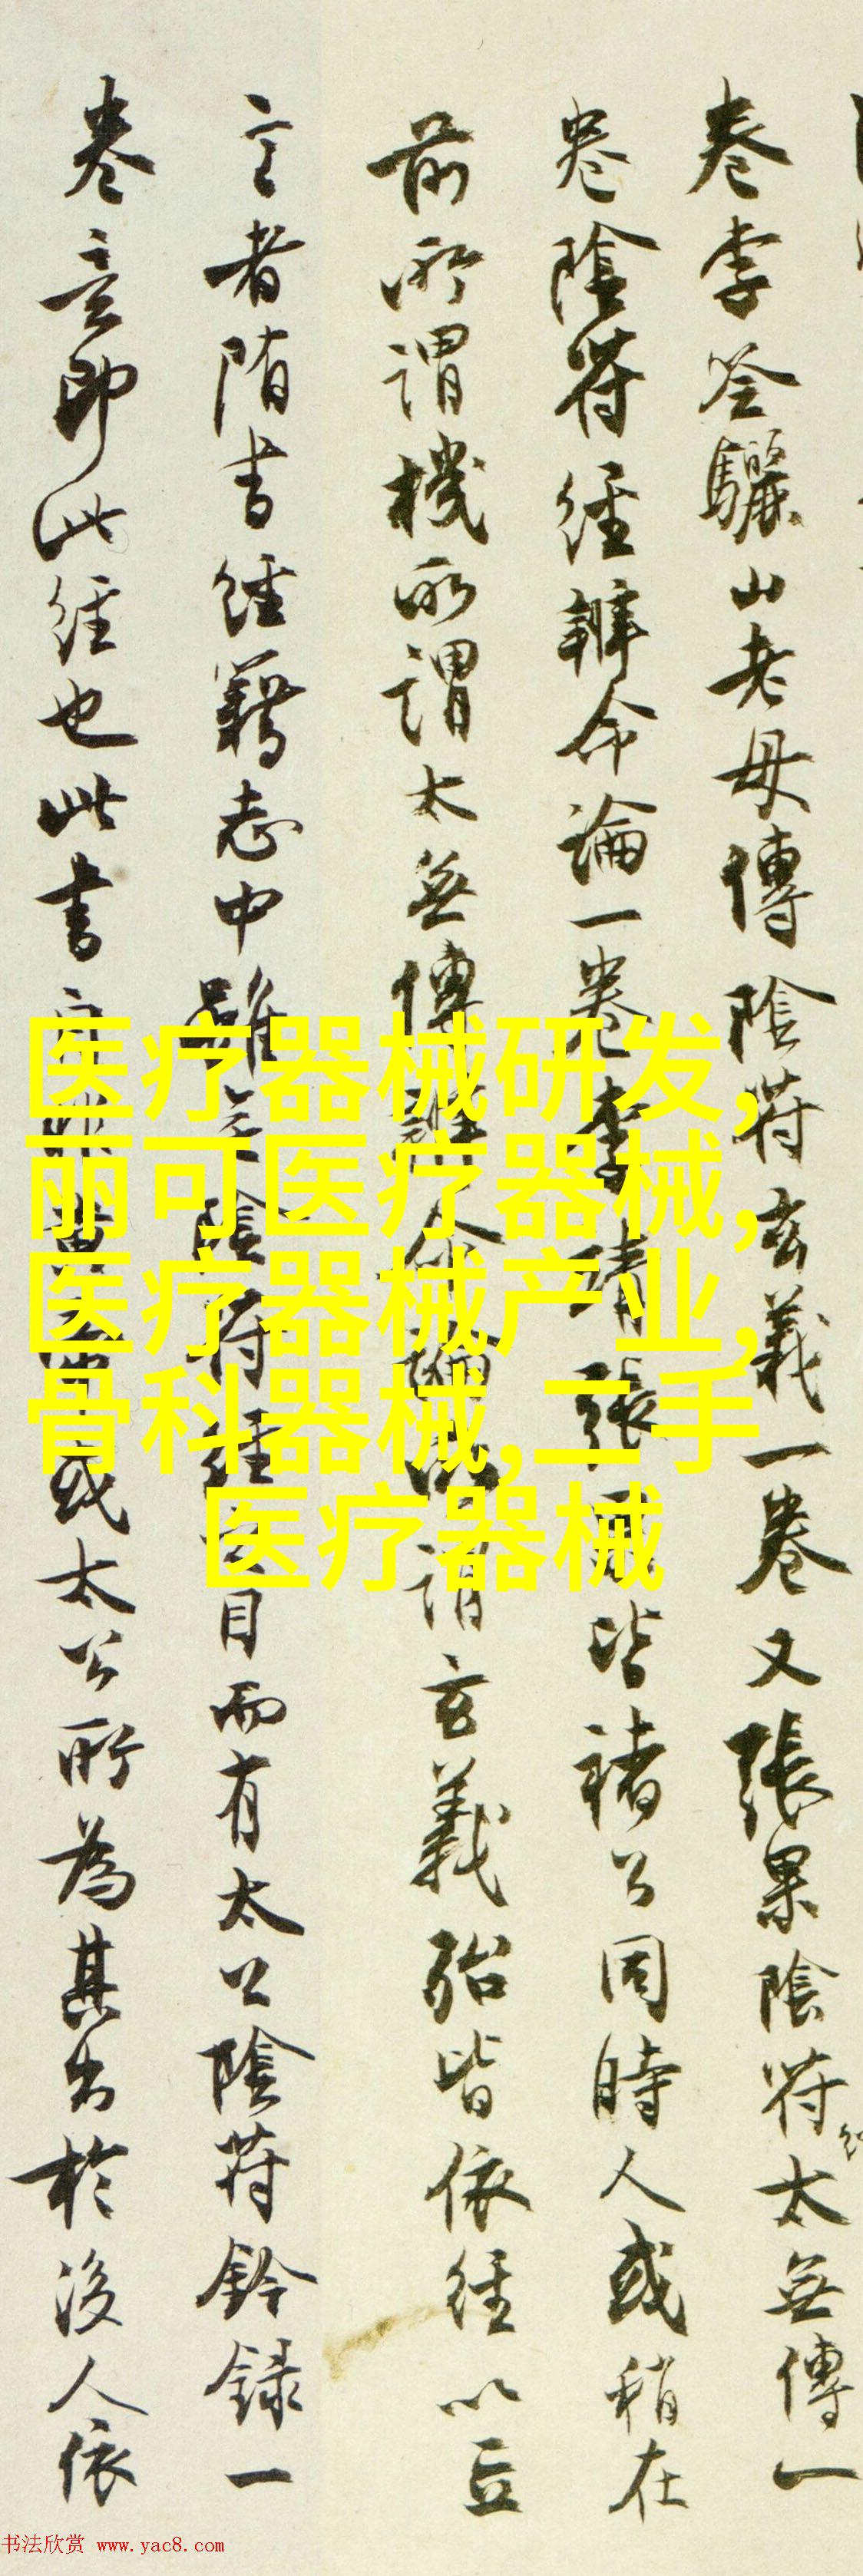 卷李筌驪山老母傳陰符玄義一卷又張果陰符太無傳一
卷陰符經辨命論一卷李靖張果皆褚公同時人或稍在
前所謂機所謂太無傳辨命論所謂玄義殆皆依經以立
言者隋書經籍志中雖無陰符經目而有太公陰符鈐録一
卷意即此經也此書
或太公所為其出於後人依
医疗器械研发,
丽可医疗器械,
医疗器械产业,
骨科器械,二手
医疗器械
书法欣赏 www.yac8.com